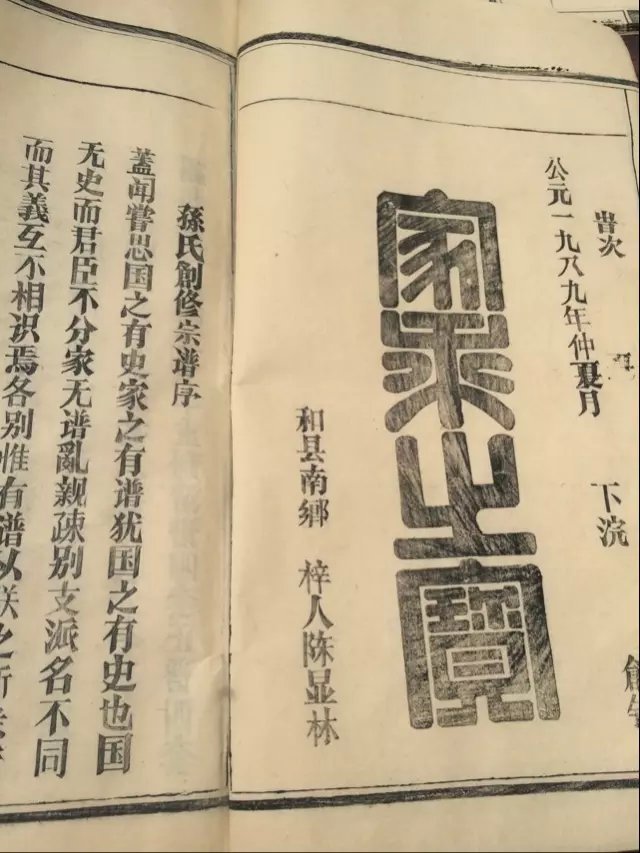 旹次 下浣
公元一九八九年仲夏月
家乘之寶
和县南鄉 梓人陈显林
孫氏創修宗谱序
蓋闻嘗思国之有史家之有谱犹国之有史也国
无史而君臣不分家无谱亂親疎别支派名不同
而其義互不相识焉各别惟有谱以联之所